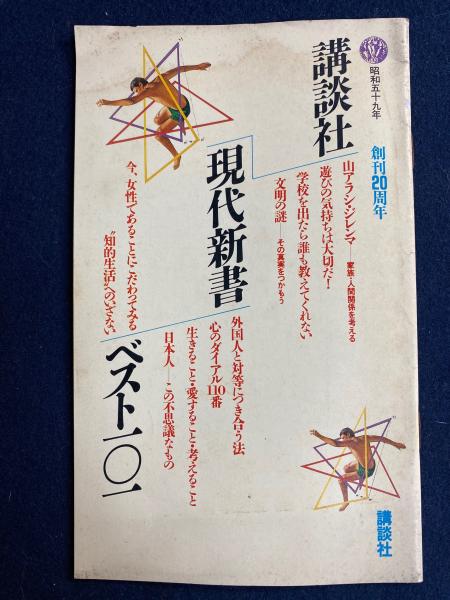 昭和五十九年
創刊20周年
講談社
現代新書
ベスト一〇一
山アラシ・ジレンマ──家族・人間関係を考える
遊びの気持ちは大切だ!
学校を出たら誰も教えてくれない
文明の謎──その真実をつかもう
外国人と対等につき合う法
心のダイアル110番
生きること・愛すること・考えること
日本人──この不思議なもの
今、女性であることにこだわってみる
“知的生活”へのいざない
講談社